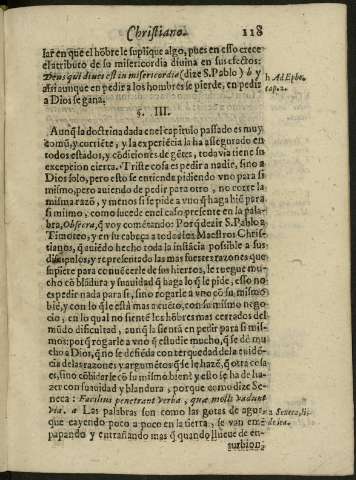 Christiano. 118
lar en que el hõbre le suplique algo, pues en esso crece
el atributo de su misericordia diuina en sus efectos:
Deus qui diues est in misericordia (dize S. Pablo) h y
assi aunque en pedir a los hombres se pierde, en pedir
a Dios se gana.
h Ad Ephe.
cap. 2.
§. III.
Aunq̃ la doctrina dada en el capitulo passado es muy
comũ, y corriẽte, y la experiẽcia la ha assegurado en
todos estados, y cõdiciones de gẽtes, todavia tiene su
excepcion cierta. Triste cosa es pedir a nadie, sino a
Dios solo, pero esto se entiende pidiendo vno para si
mismo, pero auiendo de pedir para otro, no corre la
misma razõ, y menos si se pide a vno q̃ haga biẽ para
si mismo, como sucede en el caso presente en la pala-
bra, Obsecra, q̃ voy comẽtando: Porq̃ dezir S. Pablo a
Timoteo, y en su cabeça a todos los Maestros Chris-
tianos, q̃ auiẽdo hecho toda la instãcia possible a sus
discipulos, y representado las mas fuertes razones que
supiere para conuẽcerle de sus hierros, le ruegue mu-
cho cõ blãdura y suauidad q̃ haga lo q̃ le pide, esso no
es pedir nada para si, sino rogarle a vno cõ su mismo
biẽ, y con lo q̃ le està mas a cuẽto, con su mismo nego
cio, en lo qual no sientẽ los hõbres mas cerrados del
mũdo dificultad, aunq̃ la sientã en pedir para si mis-
mos: porq̃ rogarle a vno q̃ estudie mucho, q̃ se dè mu
cho a Dios, q̃ no se defiẽda con terquedad de la euidẽ-
cia de las razones y argumẽtos q̃ se le hazẽ, q̃ otra cosa
es, sino cõbidarle cõ su mismo bien? y esto se ha de ha-
zer con suauidad y blandura, porque como dize Se-
neca: Facilius penetrant verba, quæ molli vadunt
via. a Las palabras son como las gotas de agua,
que cayendo poco a poco en la tierra, se van em-
papando y entrañando mas q̃ quando llueue de en-
a Seneca, li-
de ira.
turbion